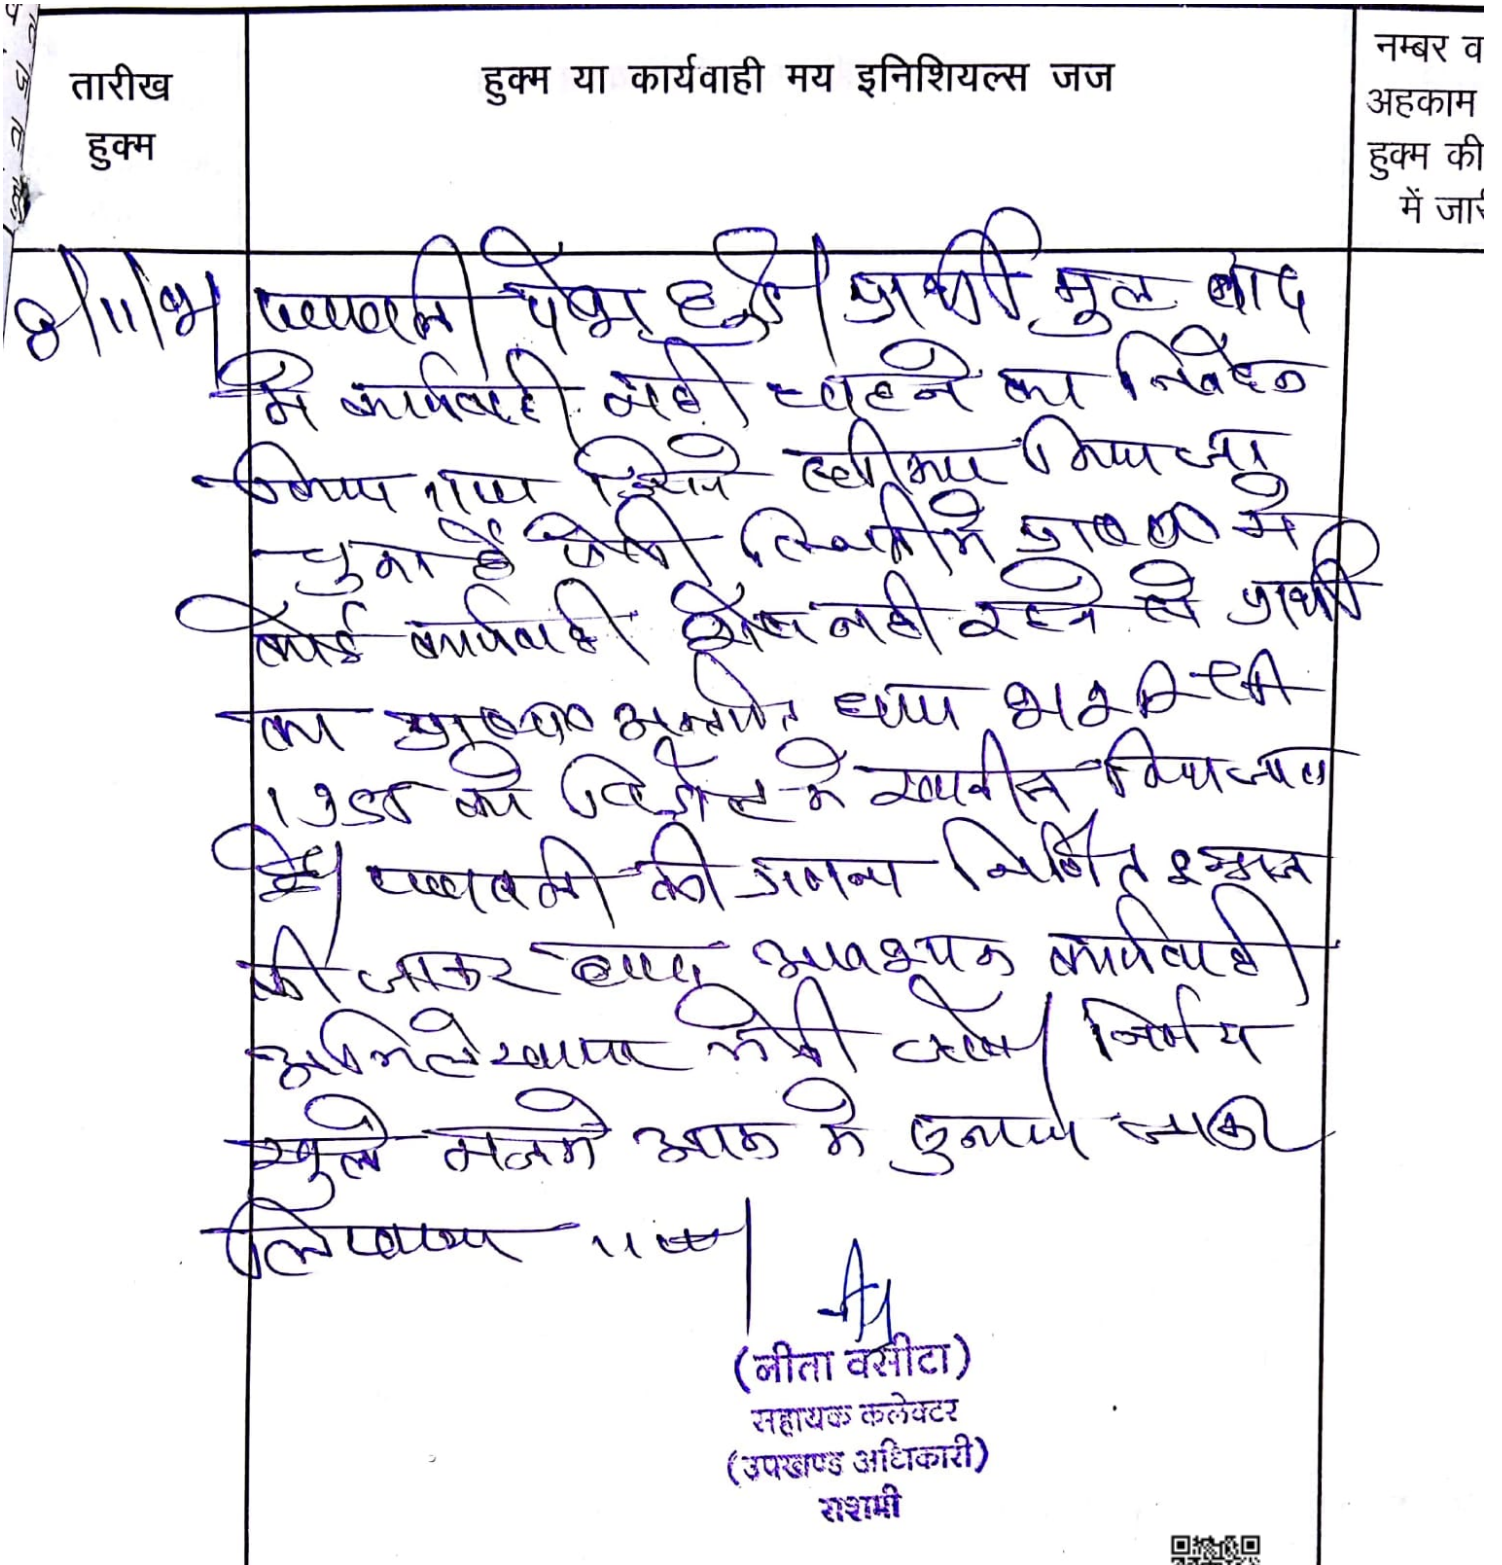 तारीख
हुक्म
हुक्म या कार्यवाही मय इनिशियल्स जज
नम्बर व
अहकाम
हुक्म की
में जार
पत्रावली पेश हुई। प्रार्थी मूल वाद
में कार्यवाही नही चाहने का निवेदन
किया गया जिसे स्वीकार किया जा
चुका है ऐसी स्थिती में प्रकरण में
कोई कार्यवाही शेष नही रहने से प्रार्थी
का अन्तर्गत धारा 212
1955 को में खारीज किया जाता
है। पत्रावली की गणना निर्णित शुमार
की जाकर बाद आवश्यक कार्यवाही
अभिलेखागार भेजी जावे। निर्णय
खुले में सुनाया जाकर
लिखाया गया।
(नीता वसीटा)
सहायक कलेक्टर
(उपखण्ड अधिकारी)
राशमी